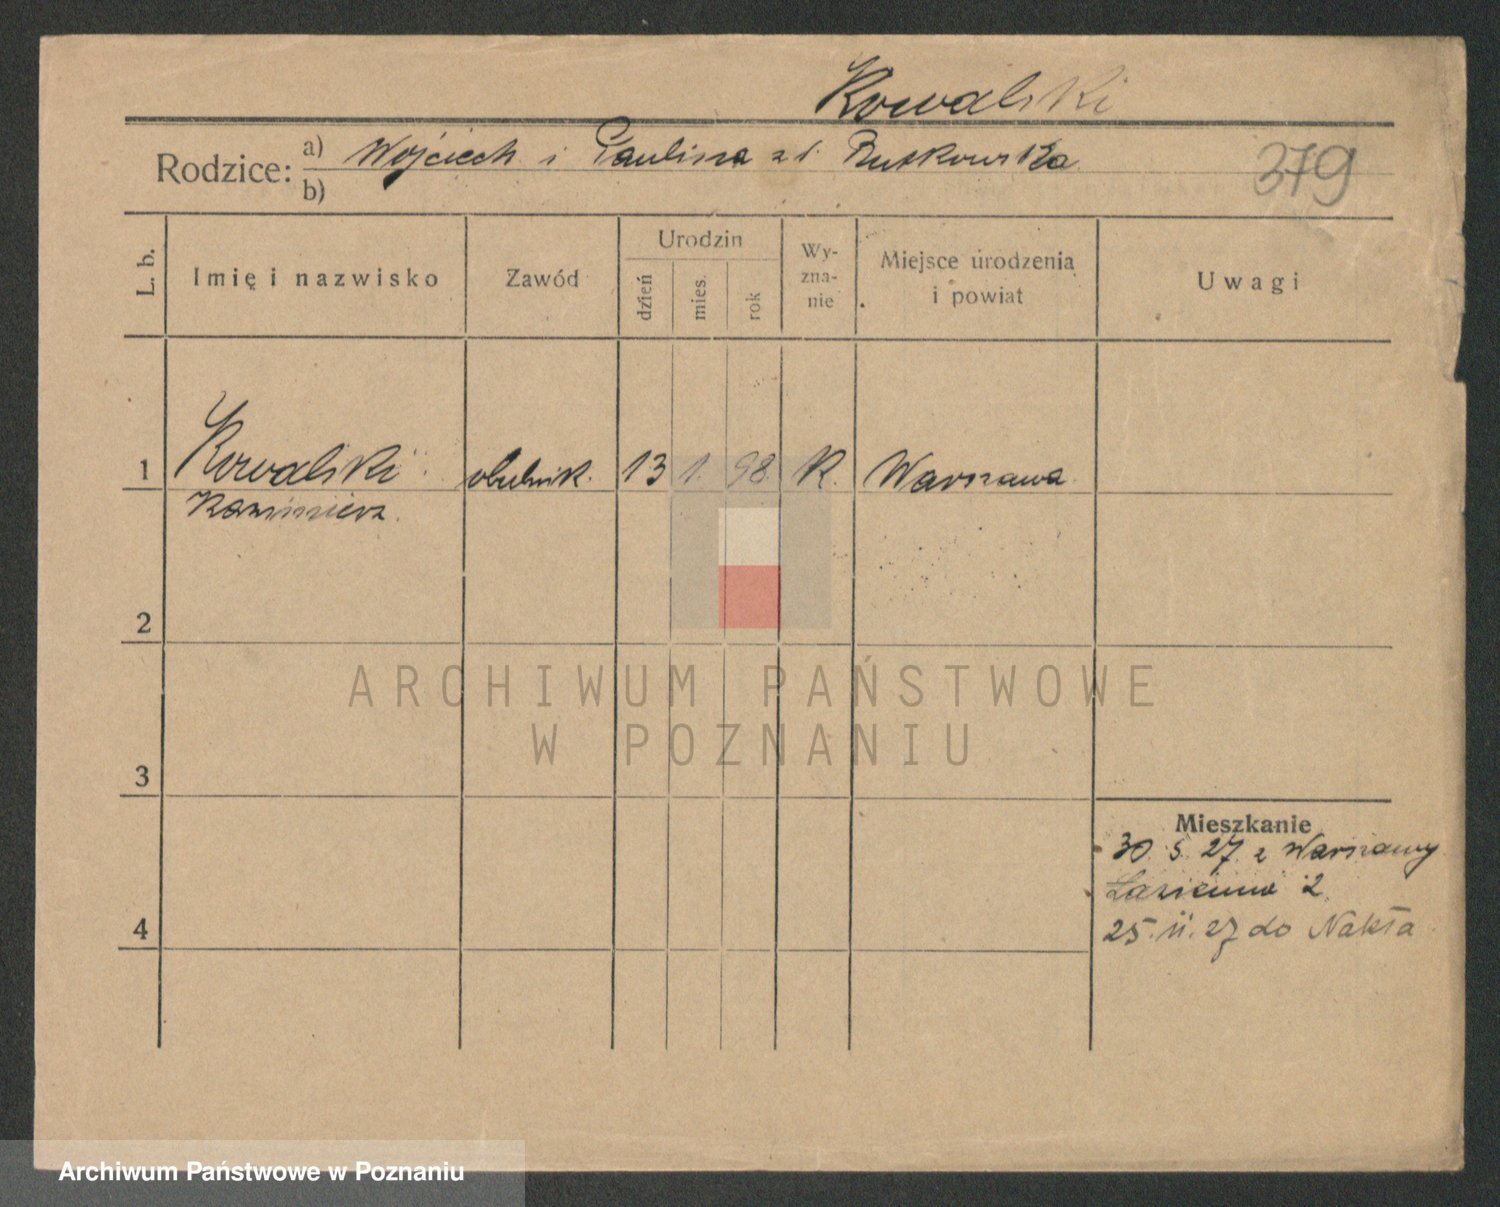 Kowalski
Rodzice: a) Wojciech i Paulina z d. Rutkowska
b)
379
L. b.
Imię i nazwisko
Zawód
Urodzin
dzień
mies.
rok
Wy-
zna-
nie
Miejsce urodzenia
i powiat
Uwagi
1
Kowalski
Kazimierz
13 1. 98. K. Warszawa
2
3
4
Mieszkanie
30. 5. 27. z Warszawy
2.
25. 11. 27 do Nakła
ARCHIWUM PAŃSTWOWE
W POZNANIU
Archiwum Państwowe w Poznaniu